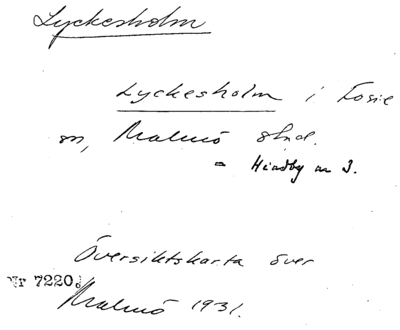 Lyckesholm
Lyckesholm i Fosie
sn, Malmö stad.
= Hindby nr 3.
Översiktskarta över
Nr 7220.
Malmö 1931.